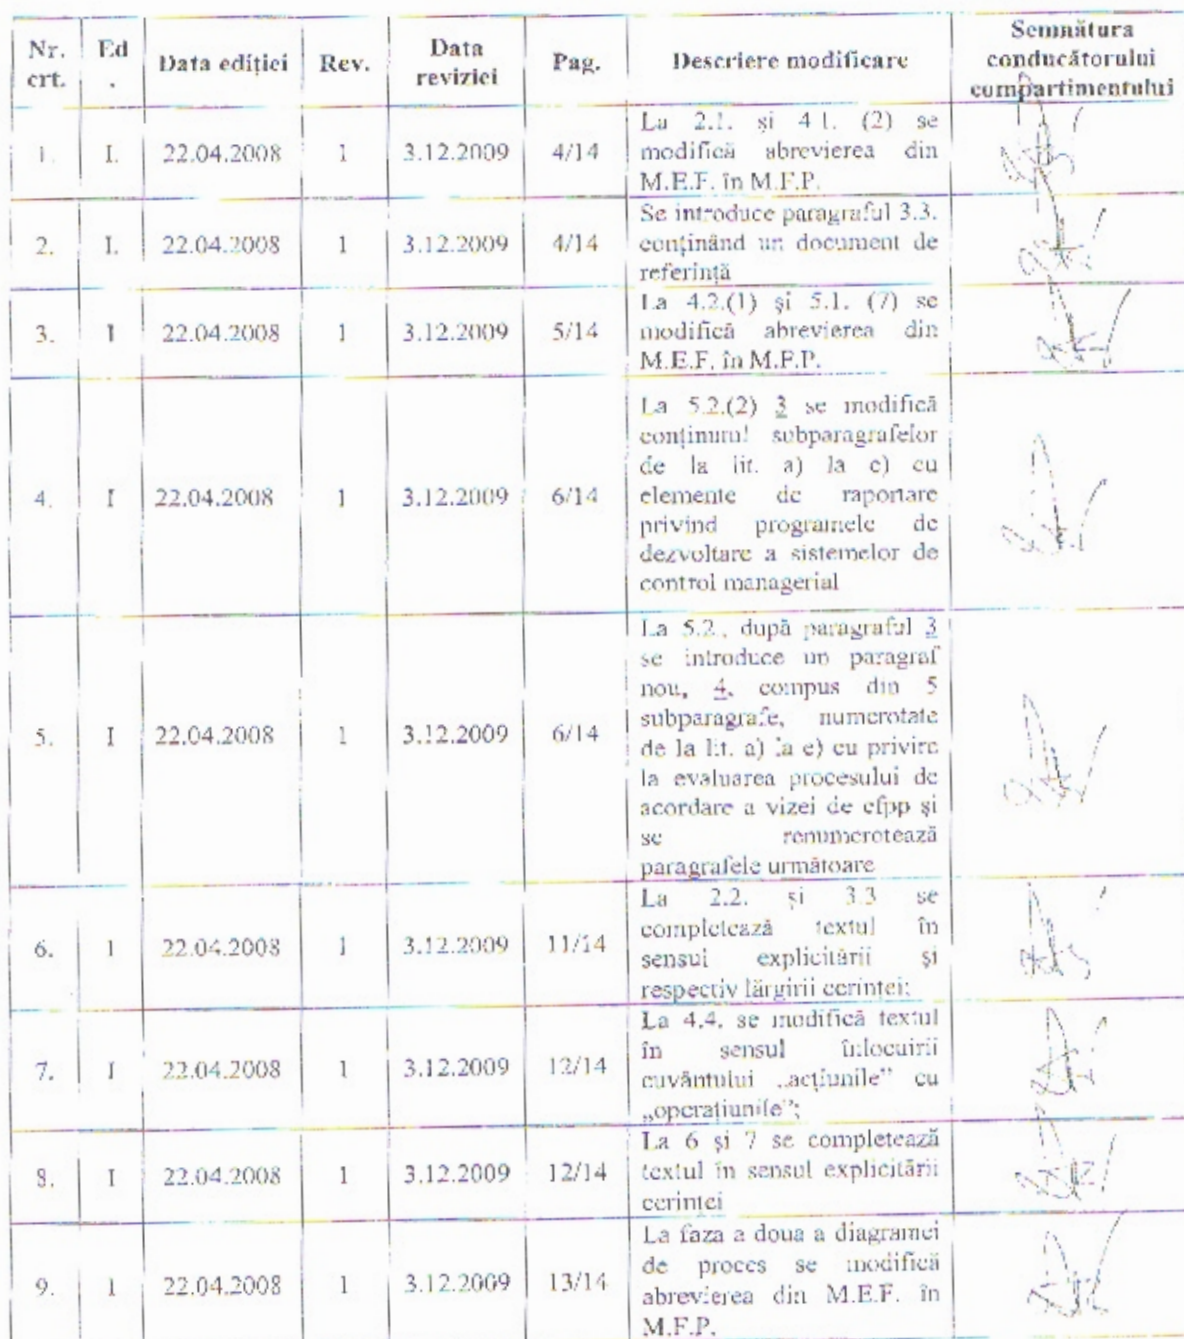 Nr. crt. Ed. Data ediției Rev. Data reviziei Pag. Descriere modificare Semnătura conducătorului compartimentului
1. I. 22.04.2008 1 3.12.2009 4/14 La 2.1. și 4.1. (2) se
modifică abrevierea din
M.E.F. în M.F.P.
2. I. 22.04.2008 1 3.12.2009 4/14 Se introduce paragraful 3.3.
conținând un document de
referință
3. I 22.04.2008 1 3.12.2009 5/14 La 4.2.(1) și 5.1. (7) se
modifică abrevierea din
M.E.F. în M.F.P.
4. I 22.04.2008 1 3.12.2009 6/14 La 5.2.(2) 3 se modifică
conținutul subparagrafelor
de la lit. a) la c) cu
elemente de raportare
privind programele de
dezvoltare a sistemelor de
control managerial
5. I 22.04.2008 1 3.12.2009 6/14 La 5.2., după paragraful 3
se introduce un paragraf
nou, 4, compus din 5
subparagrafe, numerotate
de la lit. a) la e) cu privire
la evaluarea procesului de
acordare a vizei de cfpp și
se renumerotează
paragrafele următoare
6. I 22.04.2008 1 3.12.2009 11/14 La 2.2. și 3.3 se
completează textul în
sensul explicitării și
respectiv lărgirii cerinței;
7. I 22.04.2008 1 3.12.2009 12/14 La 4.4. se modifică textul
în sensul înlocuirii
cuvântului „acțiunile” cu
„operațiunile”;
8. I 22.04.2008 1 3.12.2009 12/14 La 6 și 7 se completează
textul în sensul explicitării
cerinței
9. I 22.04.2008 1 3.12.2009 13/14 La faza a doua a diagramei
de proces se modifică
abrevierea din M.E.F. în
M.F.P.